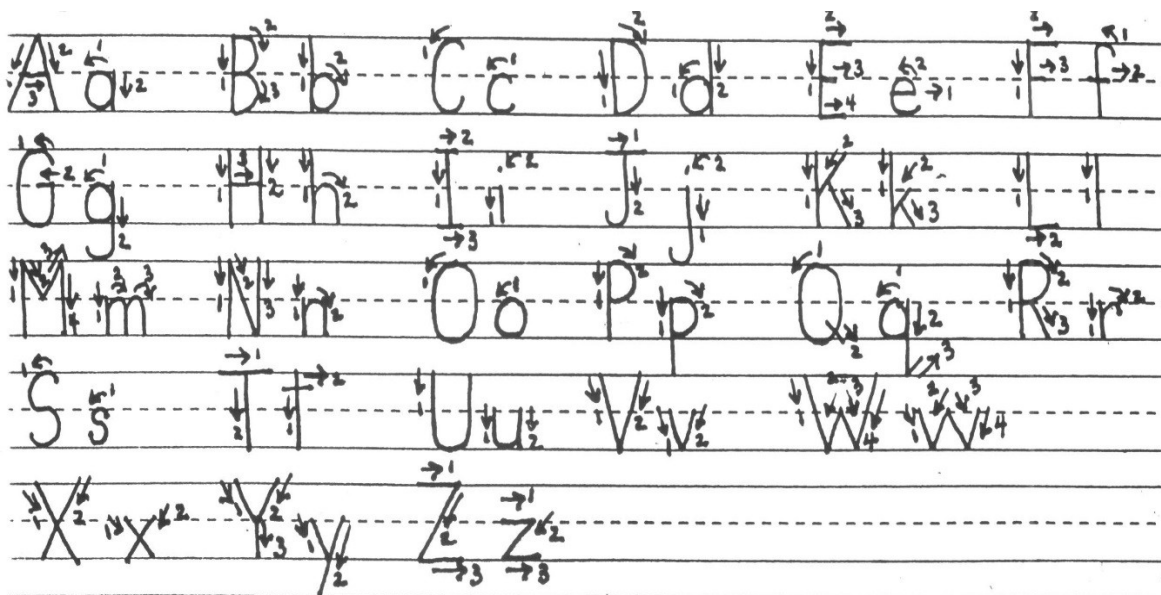 A a B b C c D d E e F f
G g H h I i J j K k L l
M m N n O o P p Q q R r
S s T t U u V v W w
X x Y y Z z